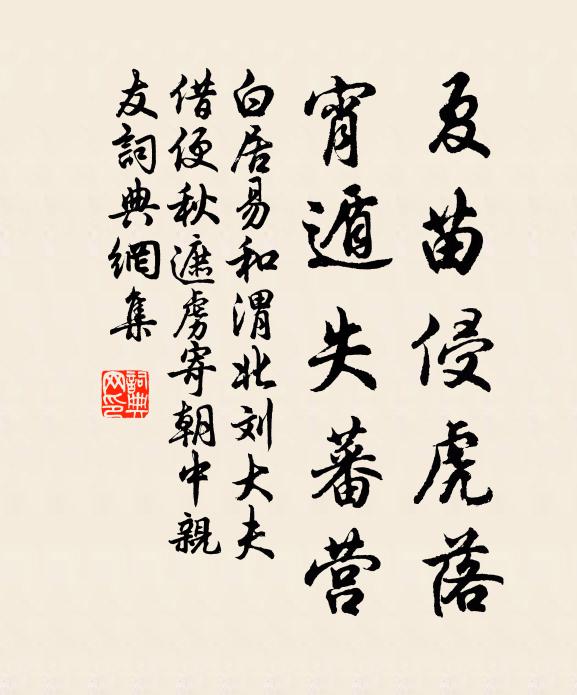 夏苗侵虎落
宵遁失蕃营
白居易和渭北刘大夫
借便秋遮虏寄朝中親
友詞典網集
詞典
网印